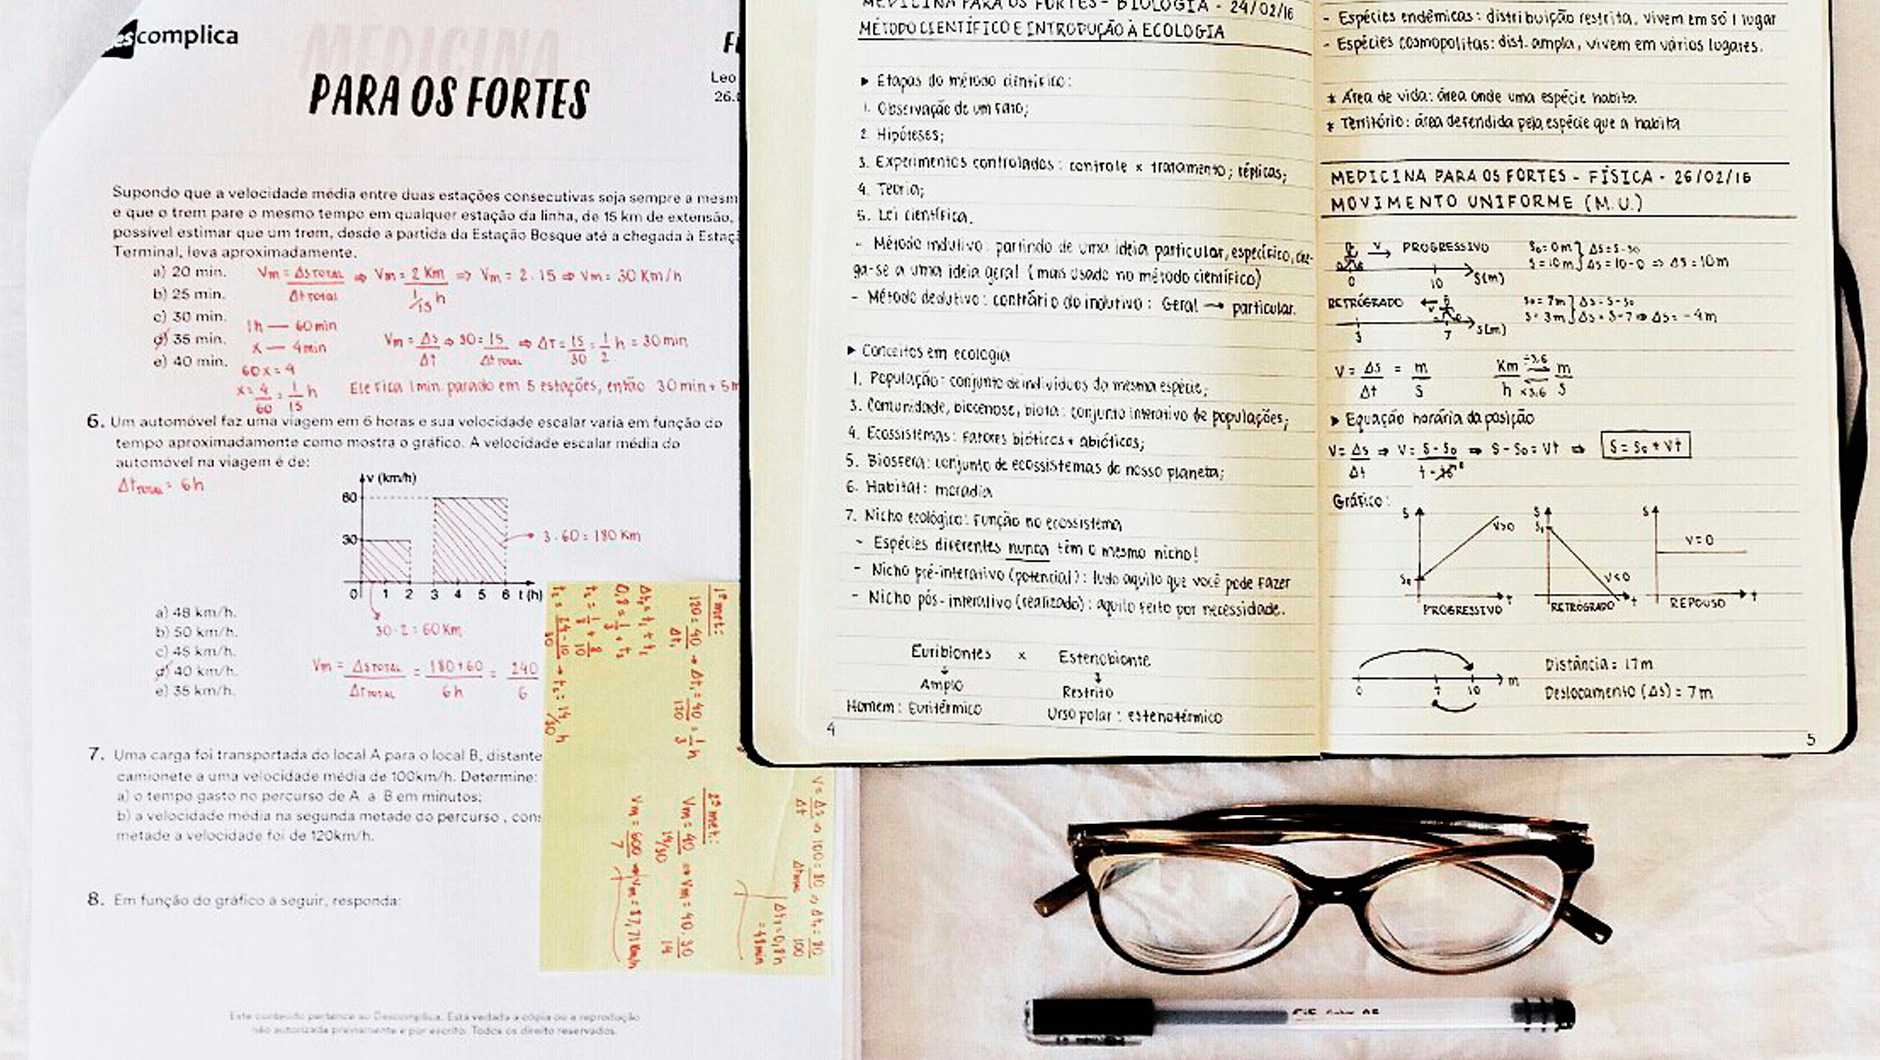 descomplica
MEDICINA
PARA OS FORTES
Leo
26.
Supondo que a velocidade média entre duas estações consecutivas seja sempre a mesm
e que o trem pare o mesmo tempo em qualquer estação da linha, de 15 km de extensão,
possível estimar que um trem, desde a partida da Estação Bosque até a chegada à Estaçã
Terminal, leva aproximadamente.
a) 20 min.
b) 25 min.
c) 30 min.
d) 35 min.
e) 40 min.
Vm = ΔS TOTAL / Δt TOTAL ⇒ Vm = 2 Km / 1/15 h ⇒ Vm = 2 . 15 ⇒ Vm = 30 Km/h
1h — 60min
x — 4min
60x = 4
x = 4/60 = 1/15 h
Vm = Δs/Δt ⇒ 30 = 15/Δt TOTAL ⇒ ΔT = 15/30 = 1/2 h = 30 min
Ele fica 1 min. parado em 5 estações, então 30 min + 5 m
6. Um automóvel faz uma viagem em 6 horas e sua velocidade escalar varia em função do
tempo aproximadamente como mostra o gráfico. A velocidade escalar média do
automóvel na viagem é de:
Δt TOTAL = 6h
v (km/h)
60
30
0 1 2 3 4 5 6 t (h)
3 . 60 = 180 Km
30 . 2 = 60 Km
a) 48 km/h.
b) 50 km/h.
c) 45 km/h.
d) 40 km/h.
e) 35 km/h.
Vm = ΔS TOTAL / Δt TOTAL = 180+60 / 6h = 240 / 6
7. Uma carga foi transportada do local A para o local B, distante
camionete a uma velocidade média de 100km/h. Determine:
a) o tempo gasto no percurso de A a B em minutos;
b) a velocidade média na segunda metade do percurso , cons
metade a velocidade foi de 120km/h.
8. Em função do gráfico a seguir, responda:
Este conteúdo pertence ao Descomplica. Está vedada a cópia ou a reprodução
não autorizada previamente e por escrito. Todos os direito reservados.
1º met:
120 = 40/Δt₁ → Δt₁ = 40/120 = 1/3 h
Δt₁ = t₁ + t₂
0,8 = 1/3 + t₂
t₂ = 24-10/30 → t₂ = 14/30 h
2º met:
Vm = 40 / 14/30 ⇒ Vm = 40 . 30/14
Vm = 600/7 ⇒ Vm = 87,71 km/h
V = Δs/Δt ⇒ 100 = 80/Δt TOTAL ⇒ Δt₁ = 80/100
Δt₁ = 0,8 h
= 48 min
MEDICINA PARA OS FORTES - BIOLOGIA - 24/02/16
MÉTODO CIENTÍFICO E INTRODUÇÃO À ECOLOGIA
▸ Etapas do método científico:
1. Observação de um fato;
2. Hipóteses;
3. Experimentos controlados: controle x tratamento; réplicas;
4. Teoria;
5. Lei científica.
- Método indutivo: partindo de uma ideia particular, específico, che-
ga-se a uma ideia geral (mais usado no método científico)
- Método dedutivo: contrário do indutivo: Geral → particular.
▸ Conceitos em ecologia
1. População: conjunto de indivíduos da mesma espécie;
3. Comunidade, biocenose, biota: conjunto interativo de populações;
4. Ecossistemas: Fatores bióticos + abióticos;
5. Biosfera: conjunto de ecossistemas do nosso planeta;
6. Habitat: moradia
7. Nicho ecológico: Função no ecossistema
- Espécies diferentes nunca têm o mesmo nicho!
- Nicho pré-interativo (potencial): tudo aquilo que você pode fazer
- Nicho pós-interativo (realizado): aquilo feito por necessidade.
Euribiontes x Estenobionte
Amplo Restrito
Homem: Euritérmico Urso polar: estenotérmico
4
- Espécies endêmicas: distribuição restrita, vivem em só 1 lugar
- Espécies cosmopolitas: dist. ampla, vivem em vários lugares.
* Área de vida: área onde uma espécie habita.
* Território: área defendida pela espécie que a habita
MEDICINA PARA OS FORTES - FÍSICA - 26/02/16
MOVIMENTO UNIFORME (M.U.)
V → PROGRESSIVO S₀ = 0m } ΔS = S - S₀
0 10 S(m) S = 10m } ΔS = 10 - 0 ⇒ ΔS = 10m
RETRÓGRADO S₀ = 7m } ΔS = S - S₀
3 7 S(m) S = 3m } ΔS = 3 - 7 ⇒ ΔS = -4m
V = ΔS/Δt = m/s Km/h ÷3,6 x3,6 m/s
▸ Equação horária da posição
V = ΔS/Δt ⇒ V = S - S₀ / t - t₀ ⇒ S - S₀ = Vt ⇒ S = S₀ + Vt
Gráfico:
S S₀ V>0 t PROGRESSIVO
S S₀ V<0 t RETRÓGRADO
S V=0 t REPOUSO
0 7 10 m
Distância = 17m
Deslocamento (Δs) = 7m
5